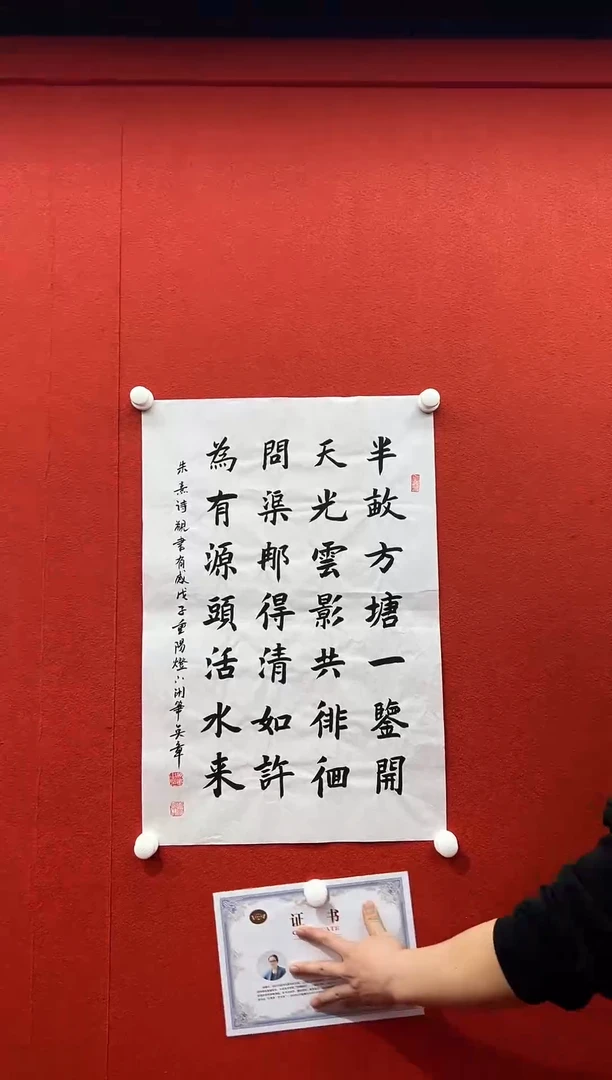 半畝方塘一鑒開
天光雲影共徘徊
問渠那得清如許
為有源頭活水来
朱熹诗觀書有感戊子重陽燈下開筆吴章
证书